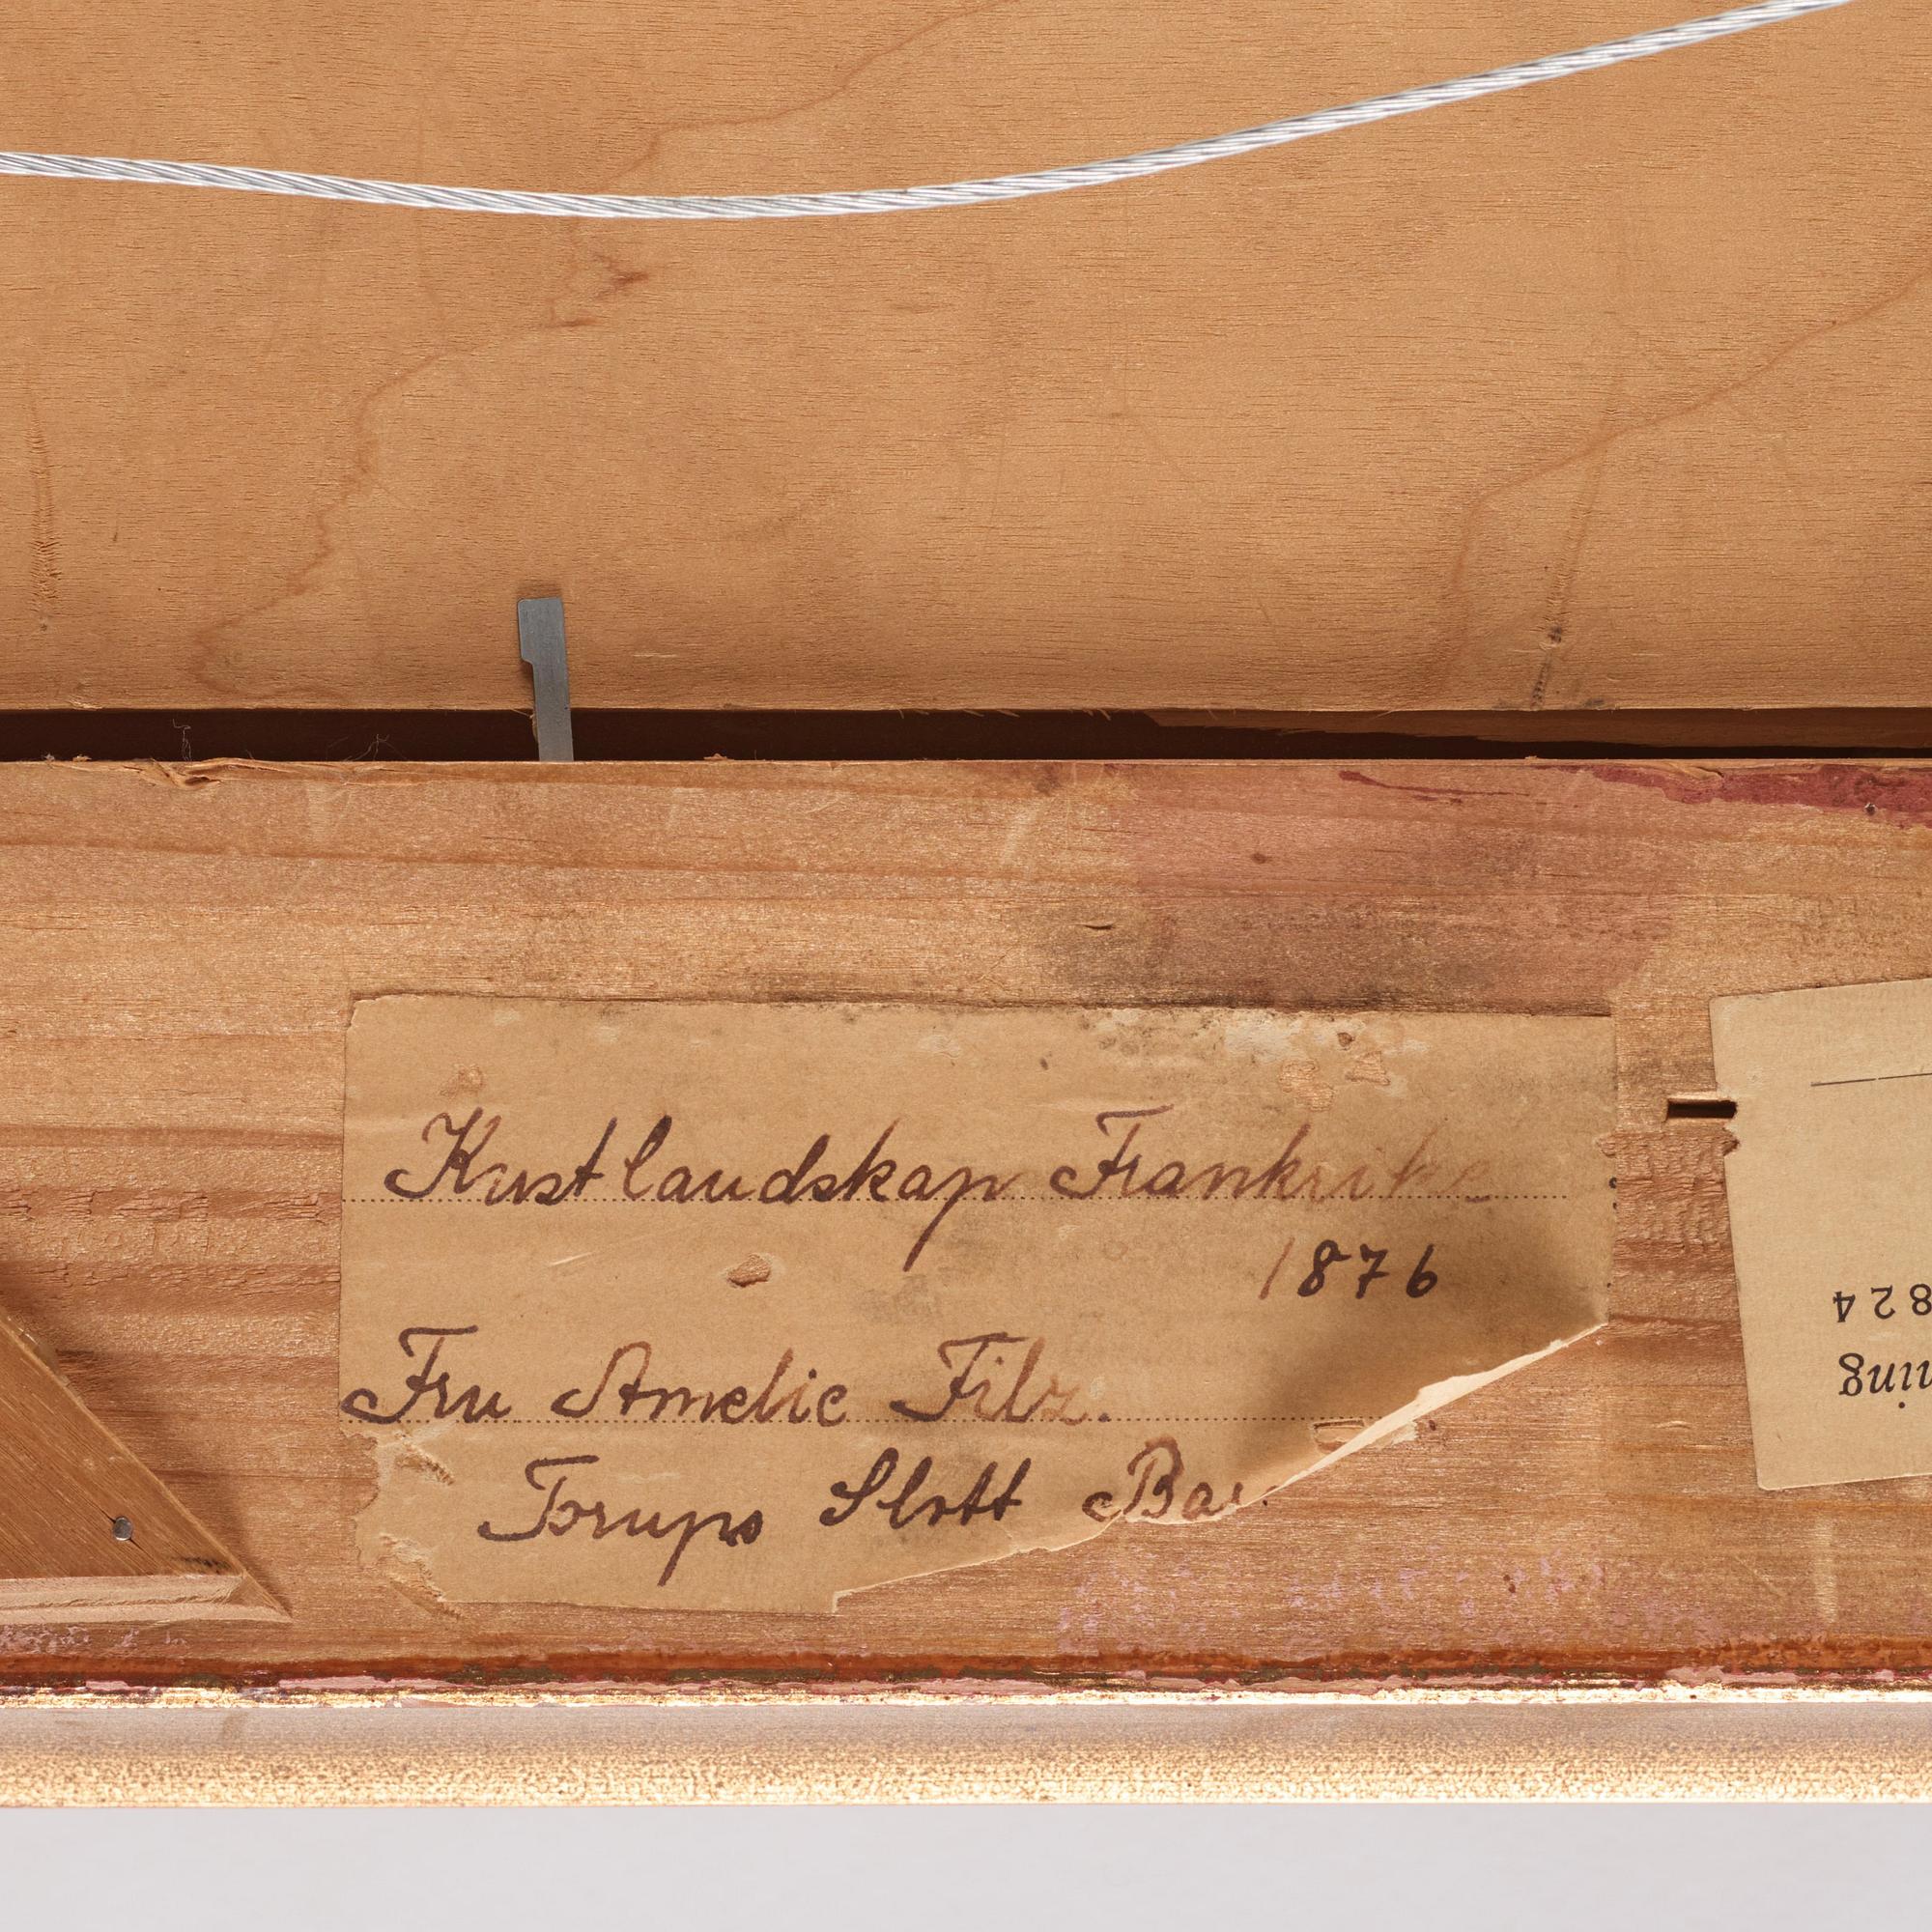 Kustlandskap Frankrike
1876
Fru Amelie Filz.
Torups Slott
824
ning